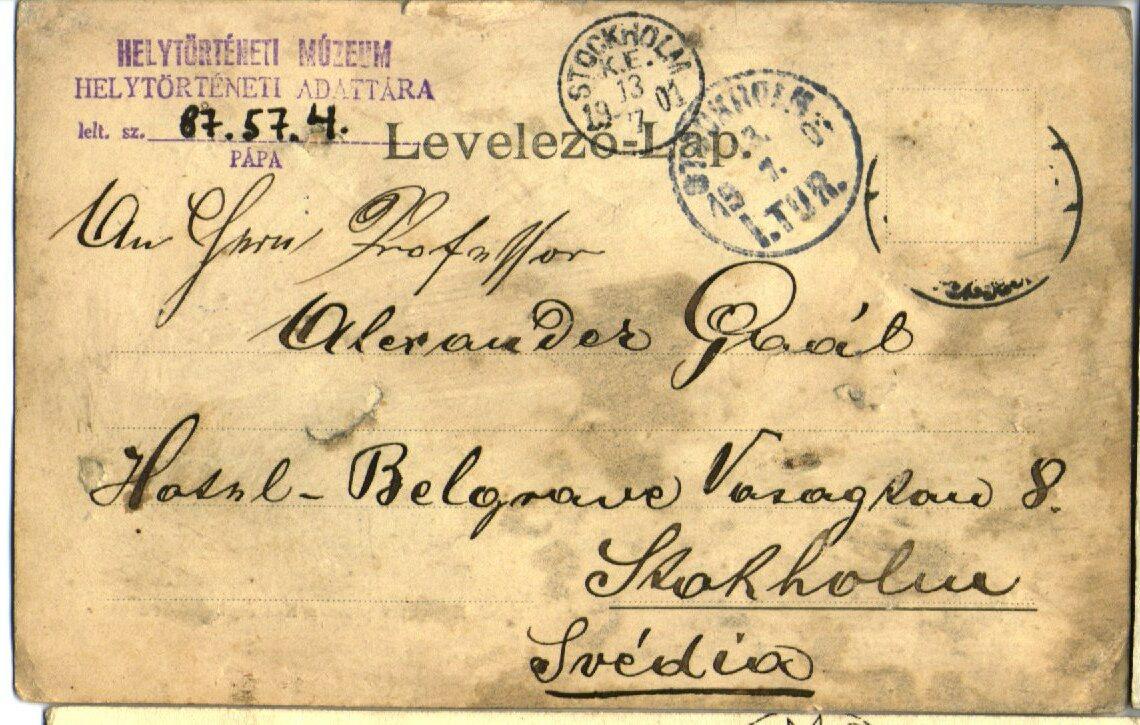 HELYTÖRTÉNETI MÚZEUM
HELYTÖRTÉNETI ADATTÁRA
lelt. sz. 87.57.4.
PÁPA
STOCKHOLM
K.E.
13
19 7 01
STOCKHOLM 6
13.
19 7.
1.TUR.
Levelező-Lap.
An Herrn Professor
Alexander Gaál
Hotel-Belgrave Vasagtan 8.
Stokholm
Svédia